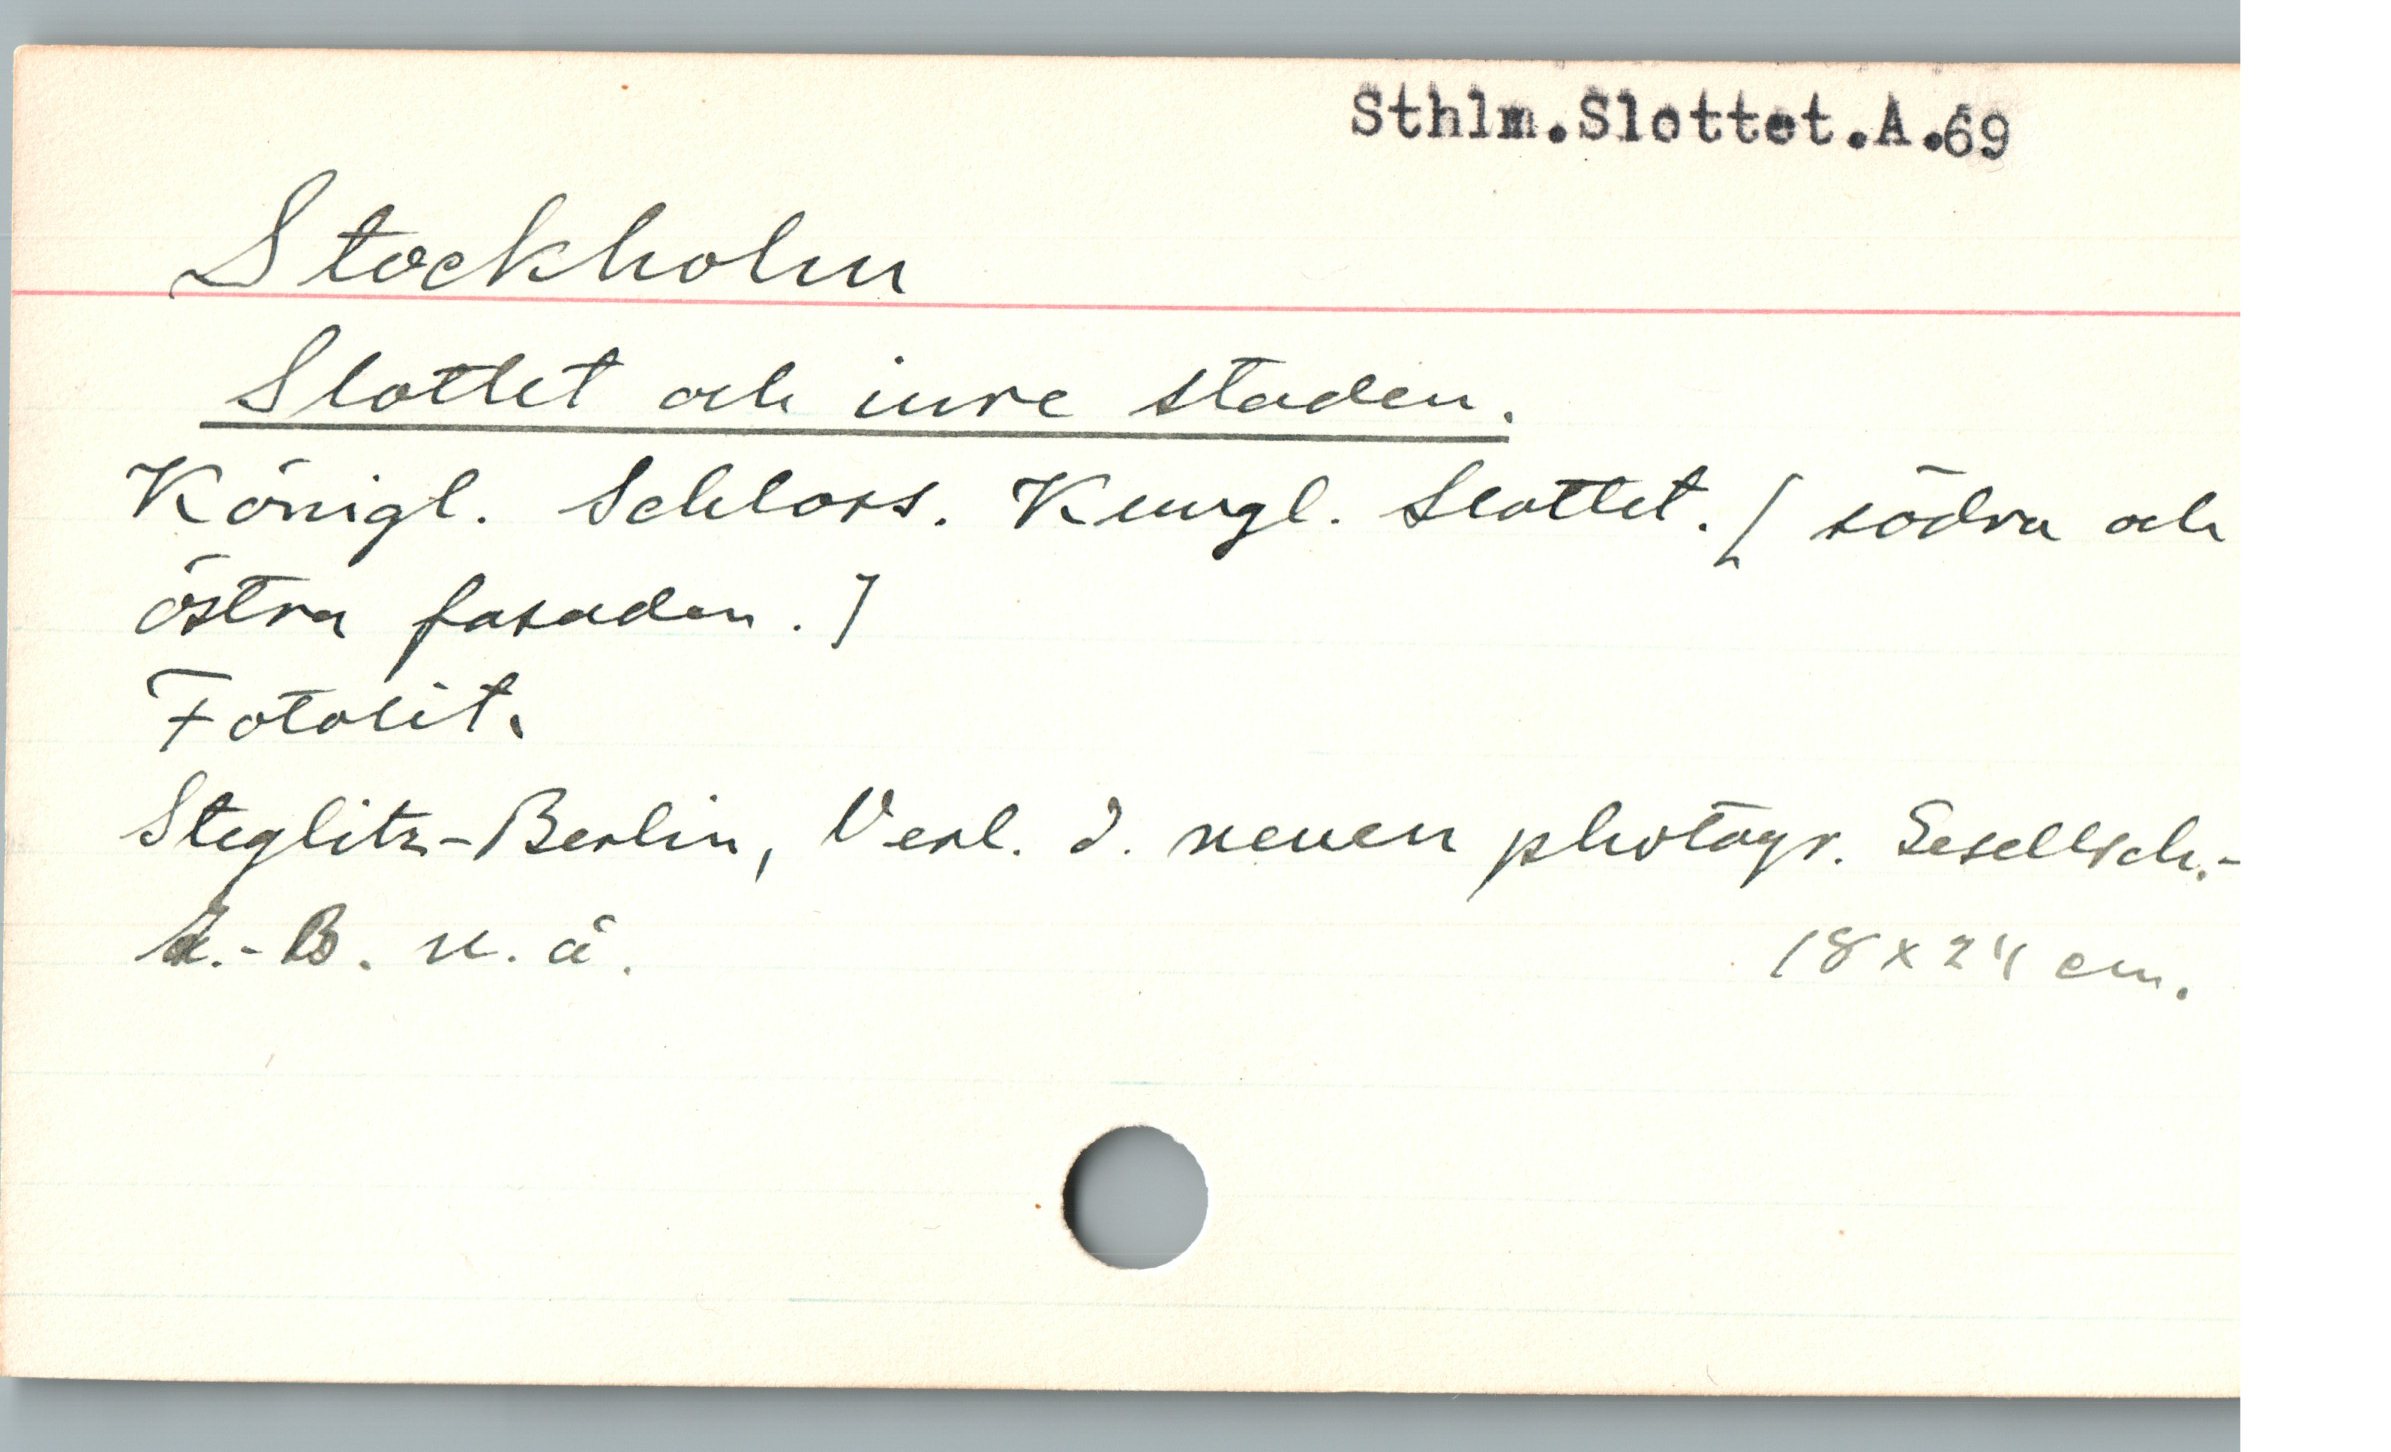 Sthlm.Slottet.A.69
Stockholm
Slottet och inre staden.
Königl. Schloss. Kungl. Slottet. [södra och
östra fasaden.]
Fotolit.
Steglitz-Berlin, Verl. d. neuen photogr. Gesellsch.-
A.-B. u. å.
18x24 cm.